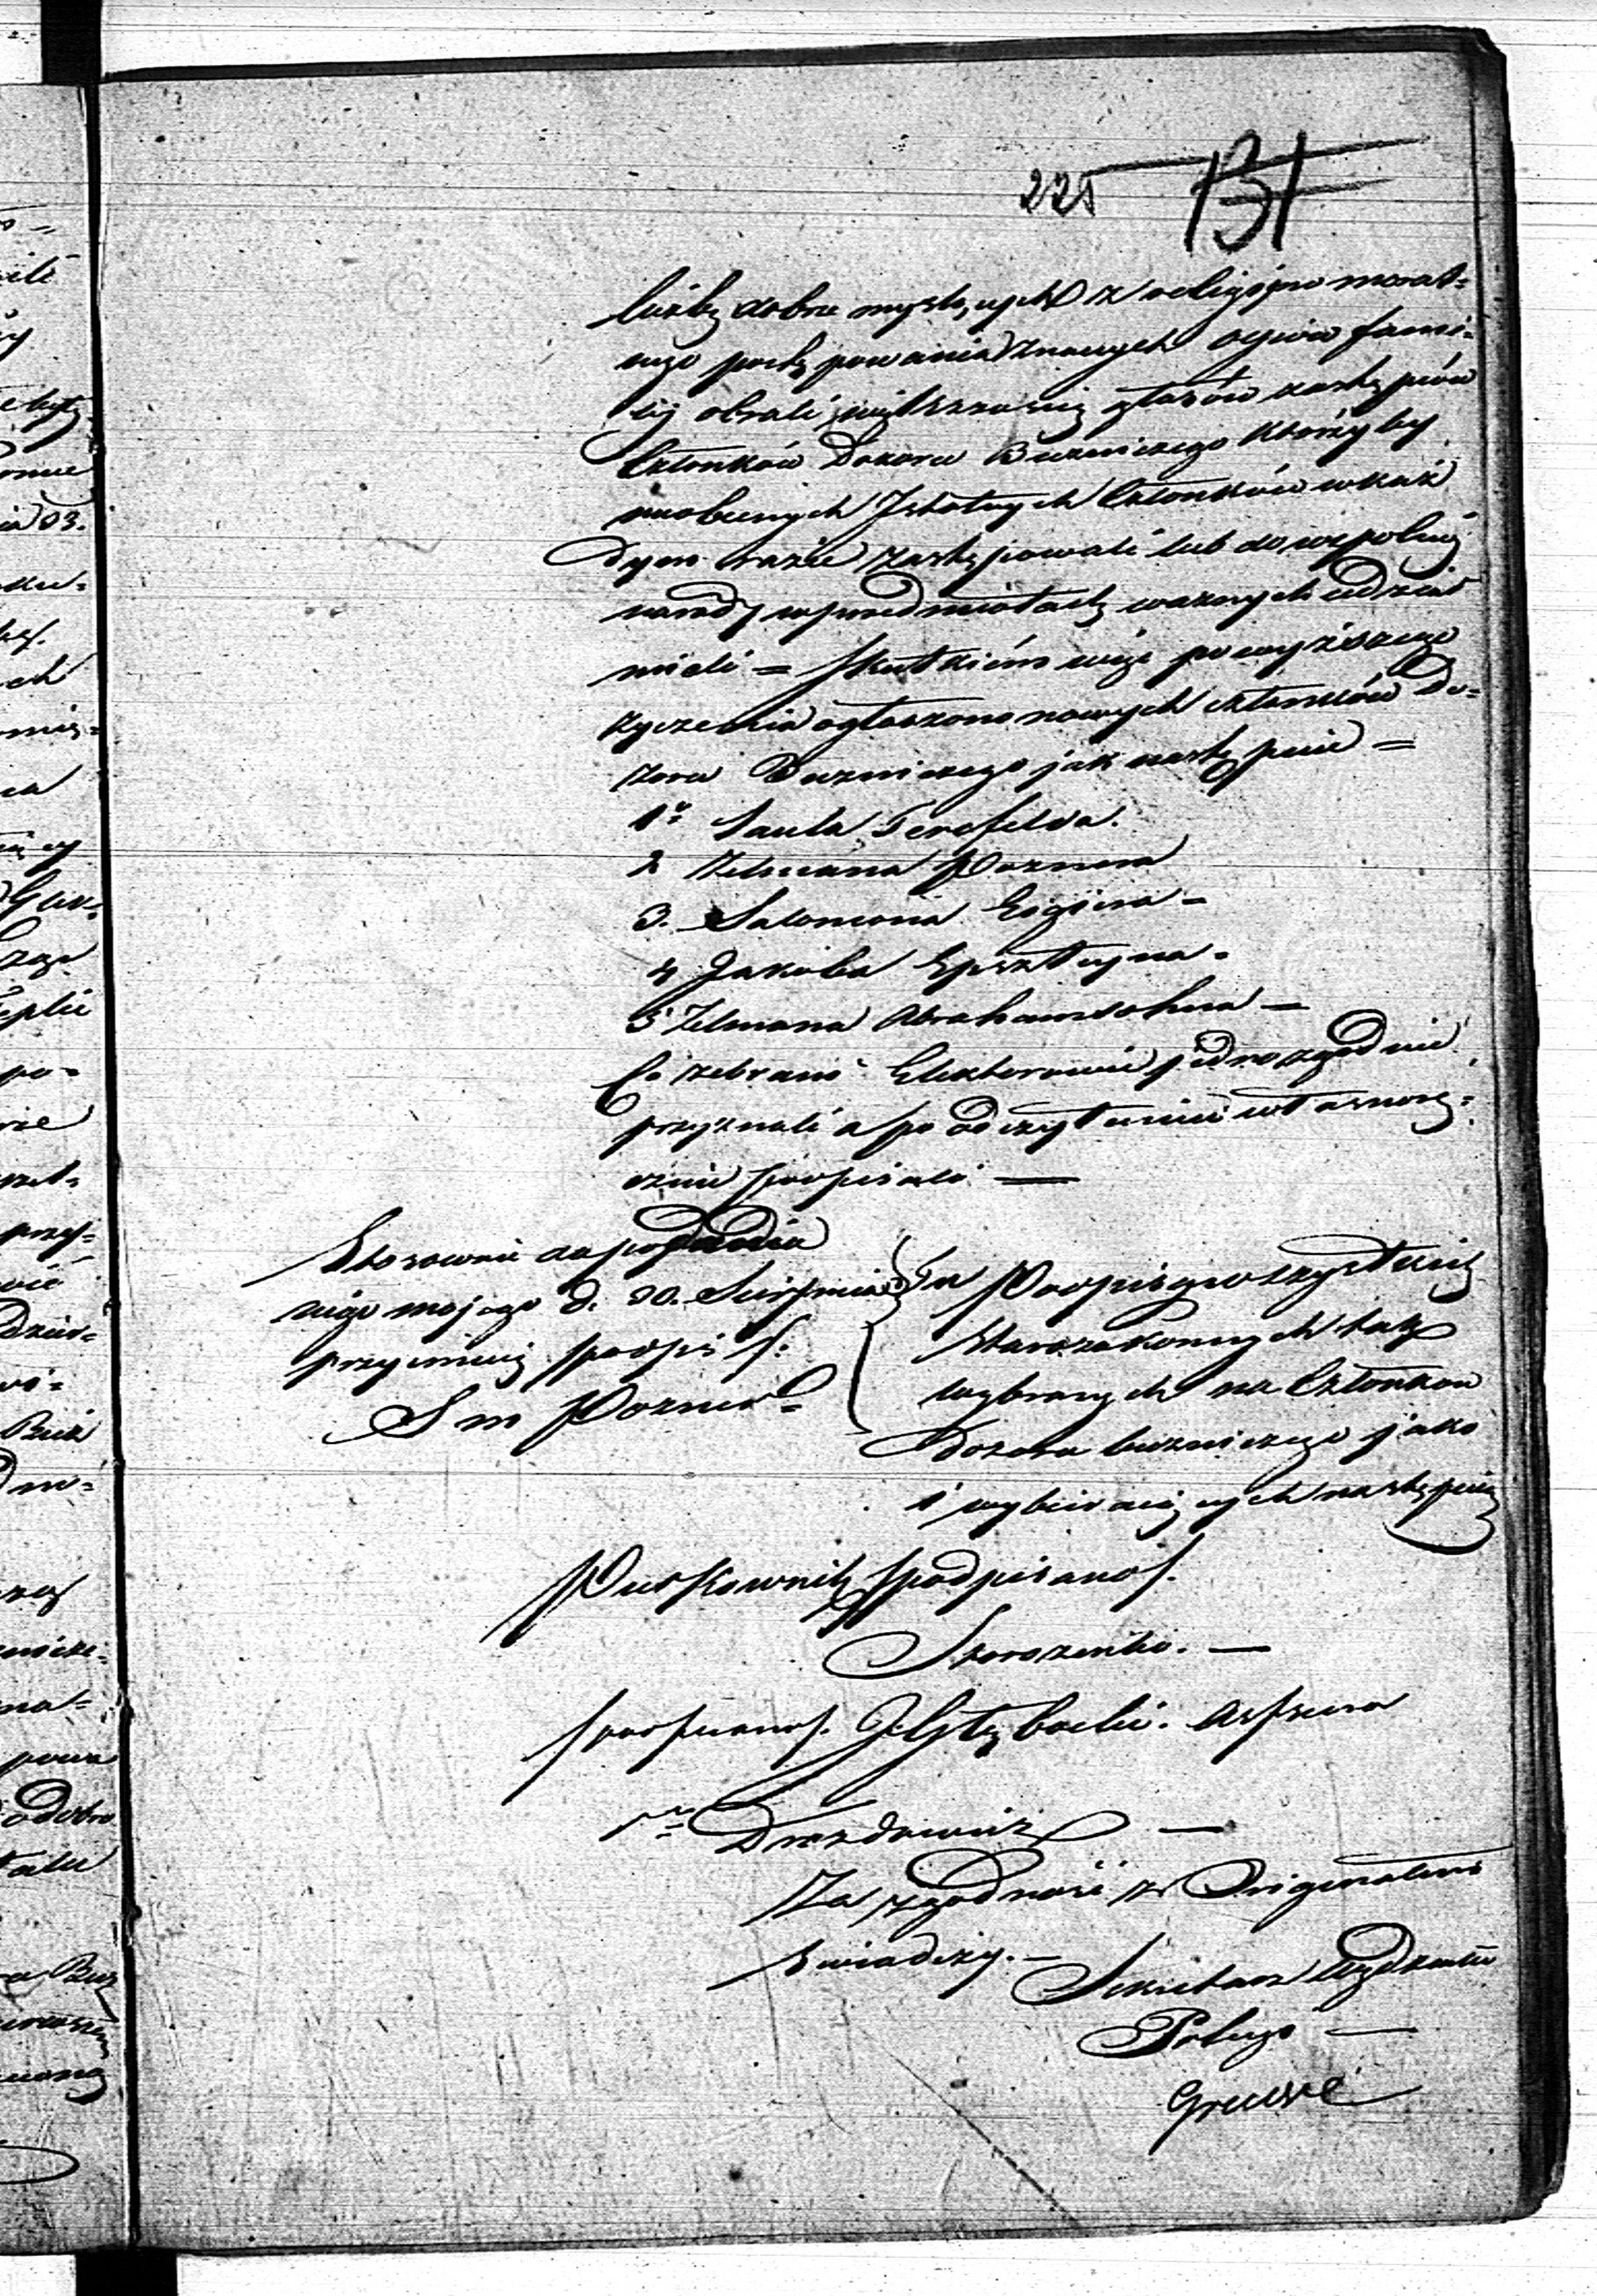 225 131
liczby dobrze myślących z religijno moral=
nego postępowania znanych ojców fami=
lij obrali większością głosów zastępców
Członków Dozoru Bużniczego którzyby
nieobecnych Istotnych Członków w każ
dym razie zastępowali lub do wspólnej
narady w przedmiotach ważnych udział
mieli = Skutkiem więc powyższego
życzenia ogłoszono nowych członków Do=
zoru Bużniczego jak następnie =
1o Saula
2 Zelmana Poznera
3. Salomona Eigera =
4 Jakóba Epsztyna =
5 Zelmana Abrahamsohna =
Co zebrani Elektorowie jednozgodnie
przyznali a po odczytaniu własnorę=
cznie podpisali —
Stosownie do podania
mego mojego d. 30. Sierpnia
przyjmuję podpis f.
S m Pozner =
Podpisy wszystkich
Starozakonnych tak
wybranych na Członków
Dozoru bużniczego jako
i wybierających następują
Pułkownik podpisano f.
Storozenko. —
podpisano f.
Drozdowicz —
Za zgodność z Originałem
świadczy. —
Sekretarz Wydziału
Gruwe